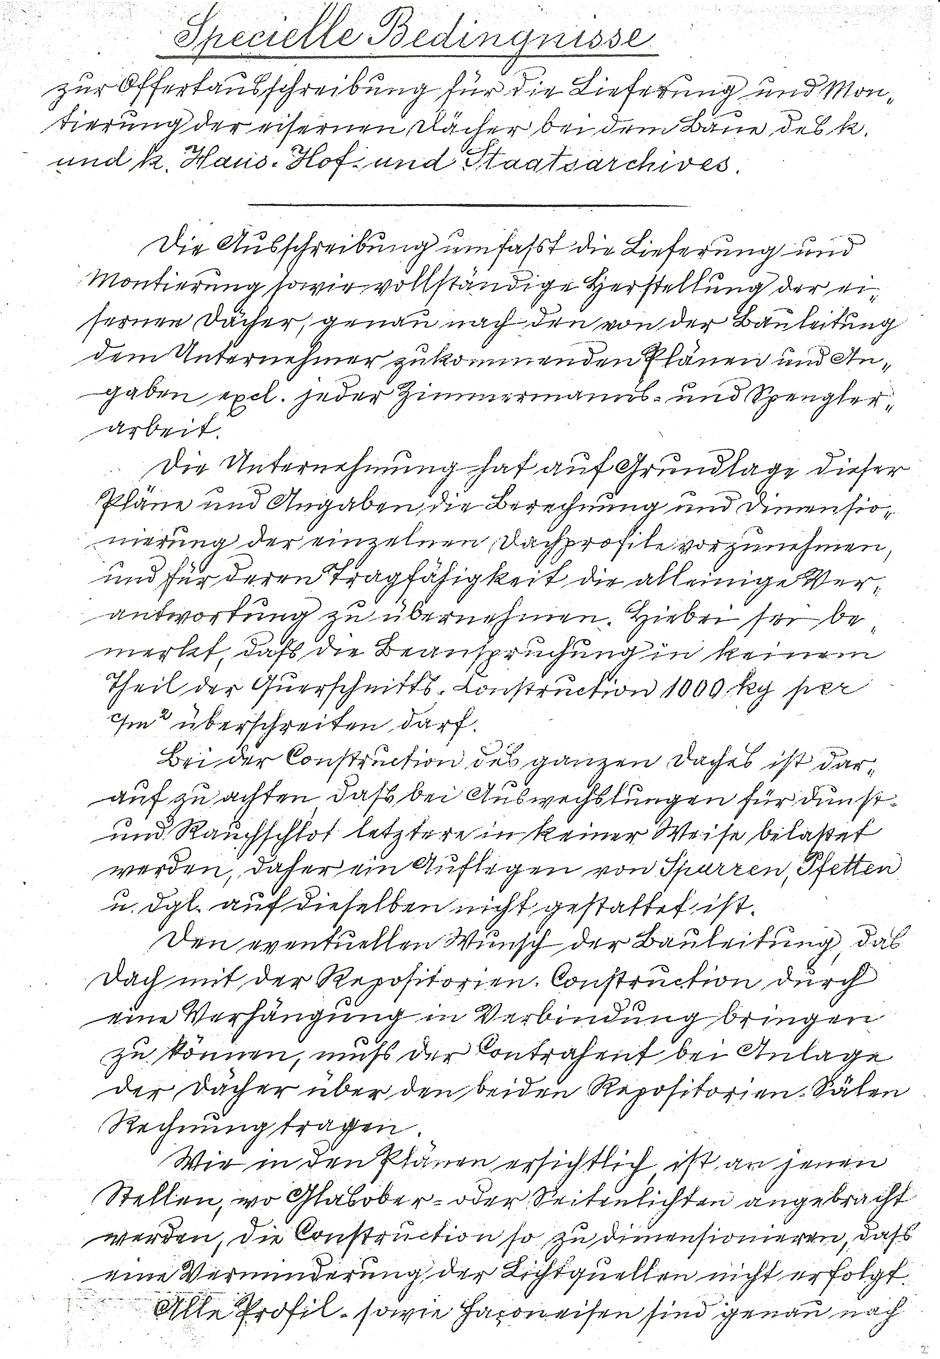 Specielle Bedingnisse
zur Offertausschreibung für die Lieferung und Mon-
tierung der eisernen Dächer bei dem Baue des k.
und k. Haus- Hof- und Staatsarchives.
Die Ausschreibung umfasst die Lieferung und
Montierung sowie vollständige Herstellung der ei-
sernen Dächer, genau nach den von der Bauleitung
dem Unternehmer zukommenden Plänen und An-
gaben excl. jeder Zimmermanns- und Spengler-
arbeit.
Die Unternehmung hat auf Grundlage dieser
Pläne und Angaben, die Berechnung und Dimensio-
nierung der einzelnen Dachprofile vorzunehmen,
und für deren Tragfähigkeit die alleinige Ver-
antwortung zu übernehmen. Hiebei sei be-
merkt, dass die Beanspruchung in keinem
Theil der Querschnitts-Construction 1000 kg per
c/m² überschreiten darf.
Bei der Construction des ganzen Daches ist dar-
auf zu achten, dass bei Auswechslungen für Dunst-
und Rauchschlot letztere in keiner Weise belastet
werden, daher ein Auflegen von Sparren, Pfetten
u. dgl. auf dieselben nicht gestattet ist.
Den eventuellen Wunsch der Bauleitung, das
Dach mit der Repositorien-Construction durch
eine Verhängung in Verbindung bringen
zu können, muss der Contrahent bei Anlage
der Dächer über den beiden Repositorien-Sälen
Rechnung tragen.
Wie in den Plänen ersichtlich, ist an jenen
Stellen, wo Glasober- oder Seitenlichten angebracht
werden, die Construction so zu dimensionieren, dass
eine Verminderung der Lichtquellen nicht erfolgt.
Alle Profil- sowie Façoneisen sind genau nach
2